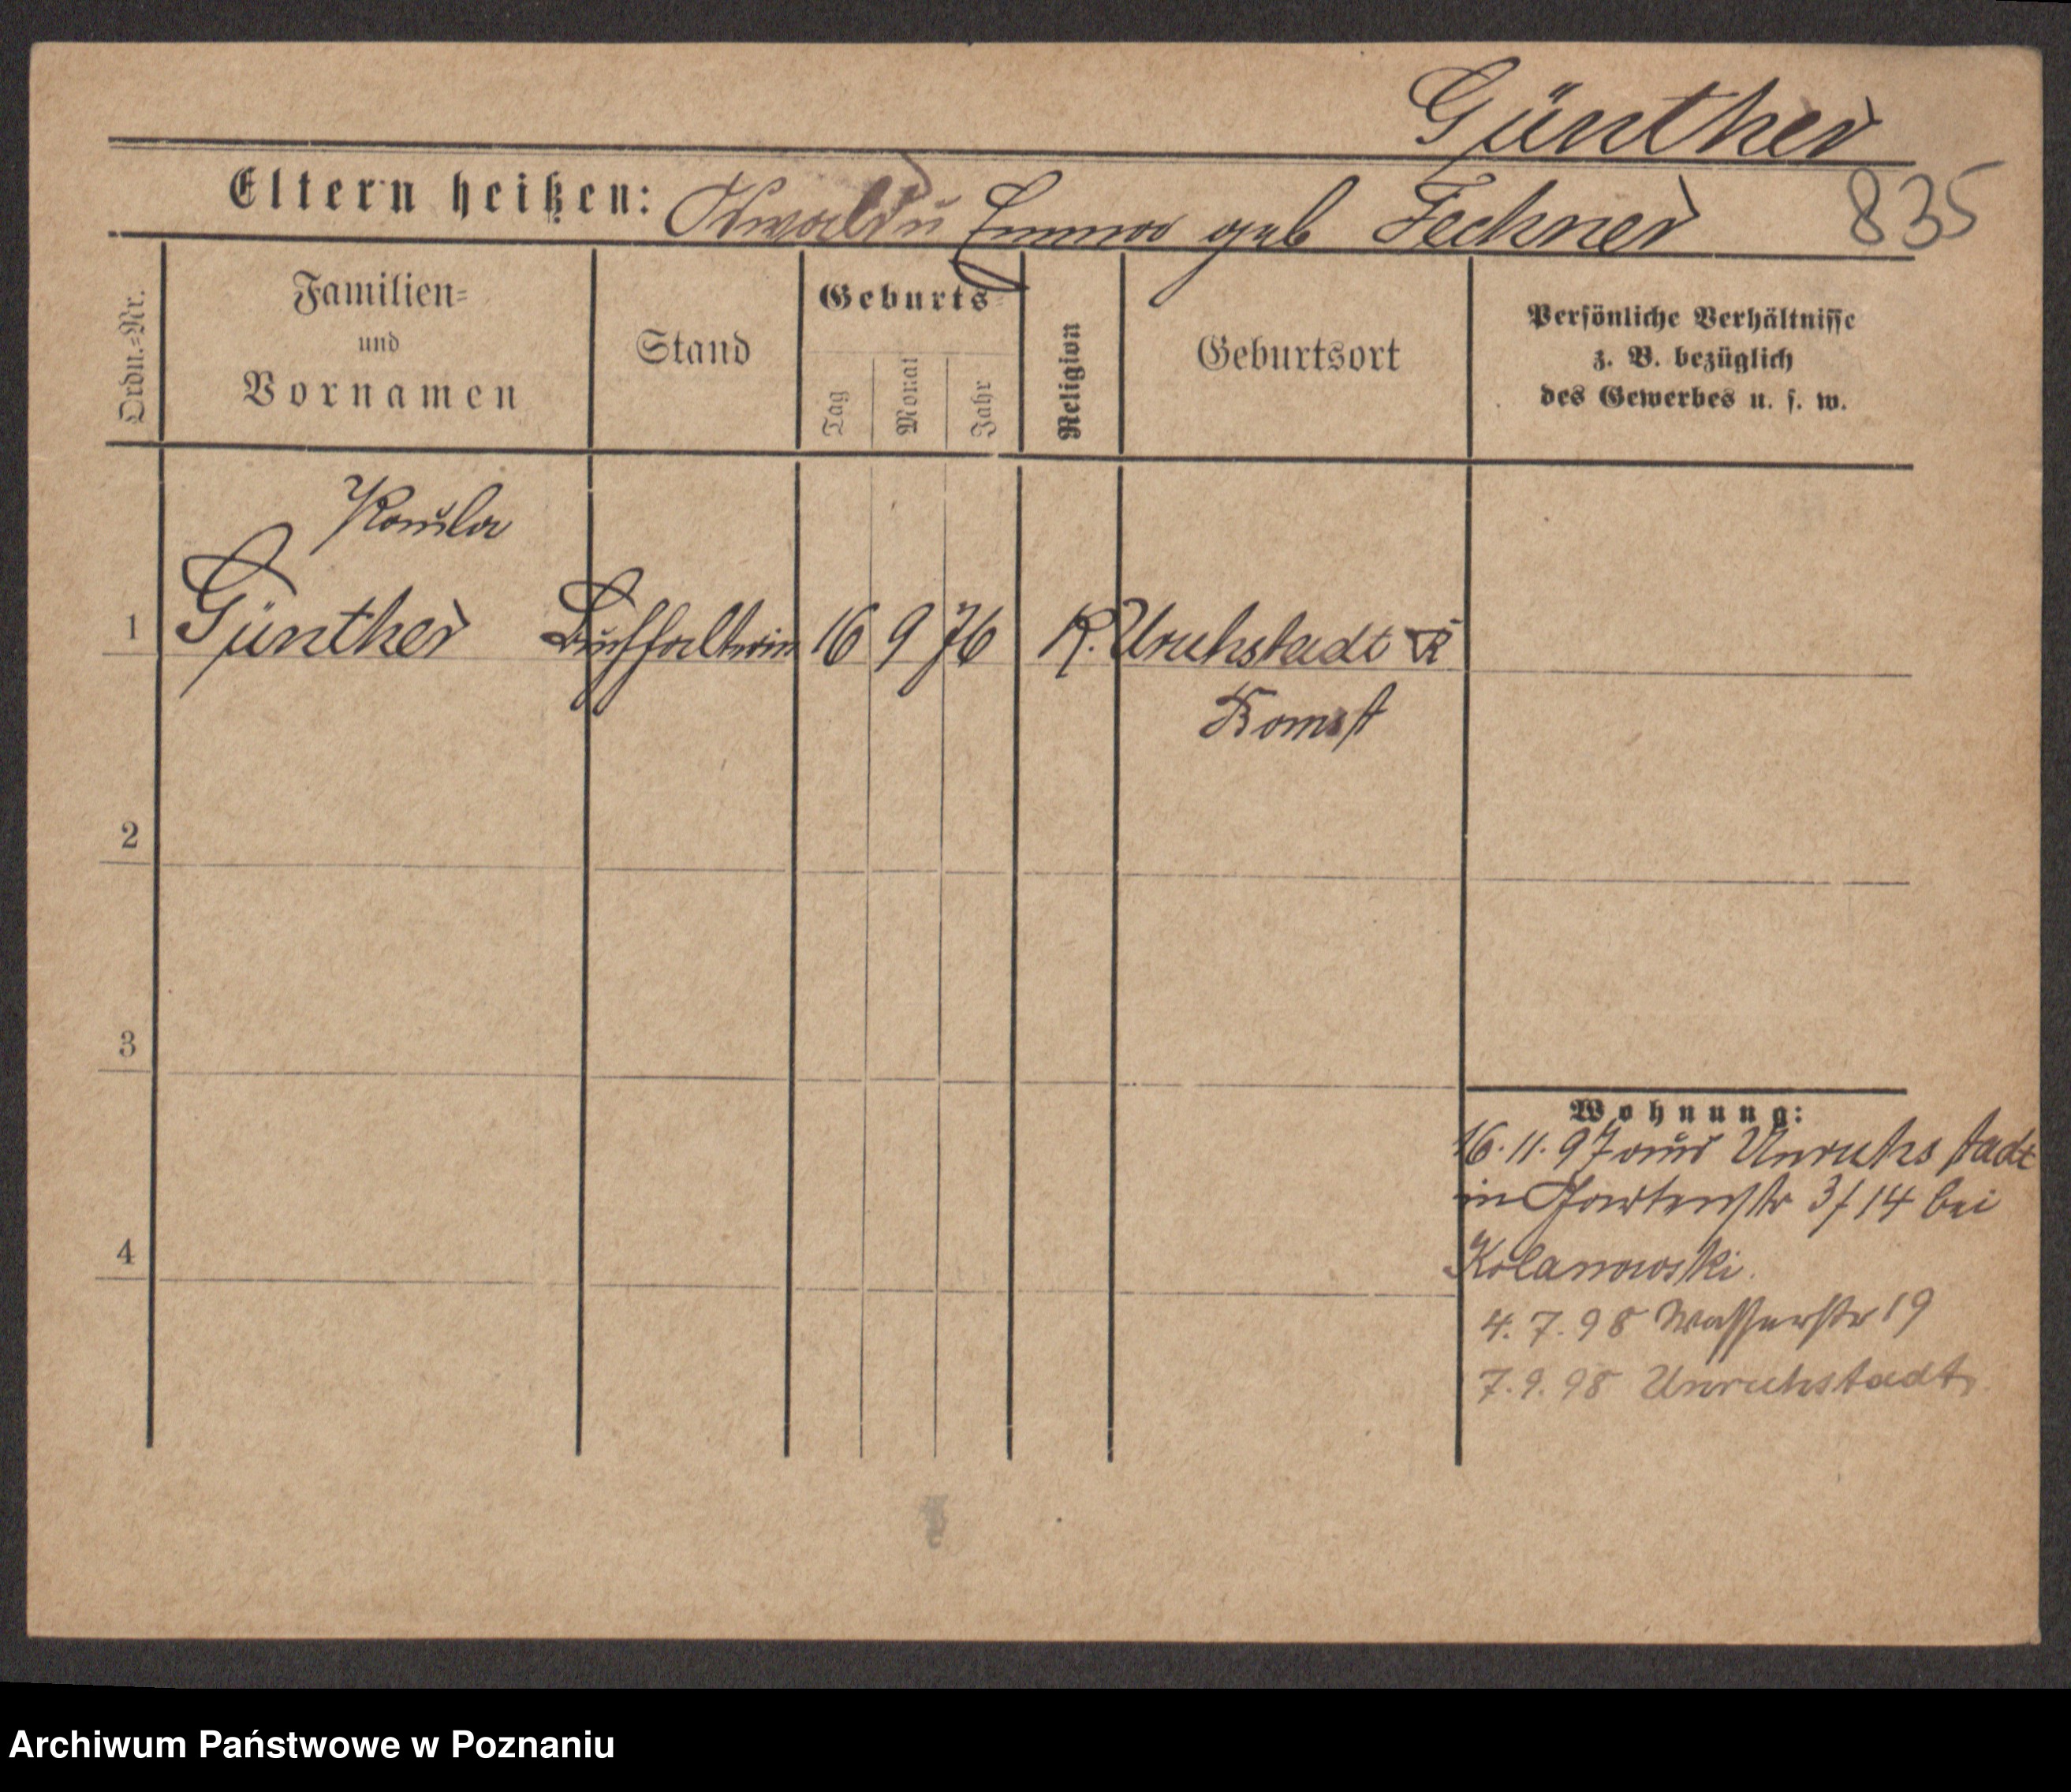 Günther
Eltern heißen: Oswald u Emma geb Fechner 835
Ordn.=Nr.
Familien=
und
Vornamen
Stand
Geburts
Tag
Monat
Jahr
Religion
Geburtsort
Persönliche Verhältnisse
z. B. bezüglich
des Gewerbes u. s. w.
Paula
1 Günther Buchhalterin 16 9 76 K. Unruhstadt Kr
Bomst
2
3
4
Wohnung:
16.11.97 aus Unruhstadt
in Gartenstr 3/14 bei
Kolanowski.
4.7.98 Wasserstr 19
7.9.98 Unruhstadt
Archiwum Państwowe w Poznaniu